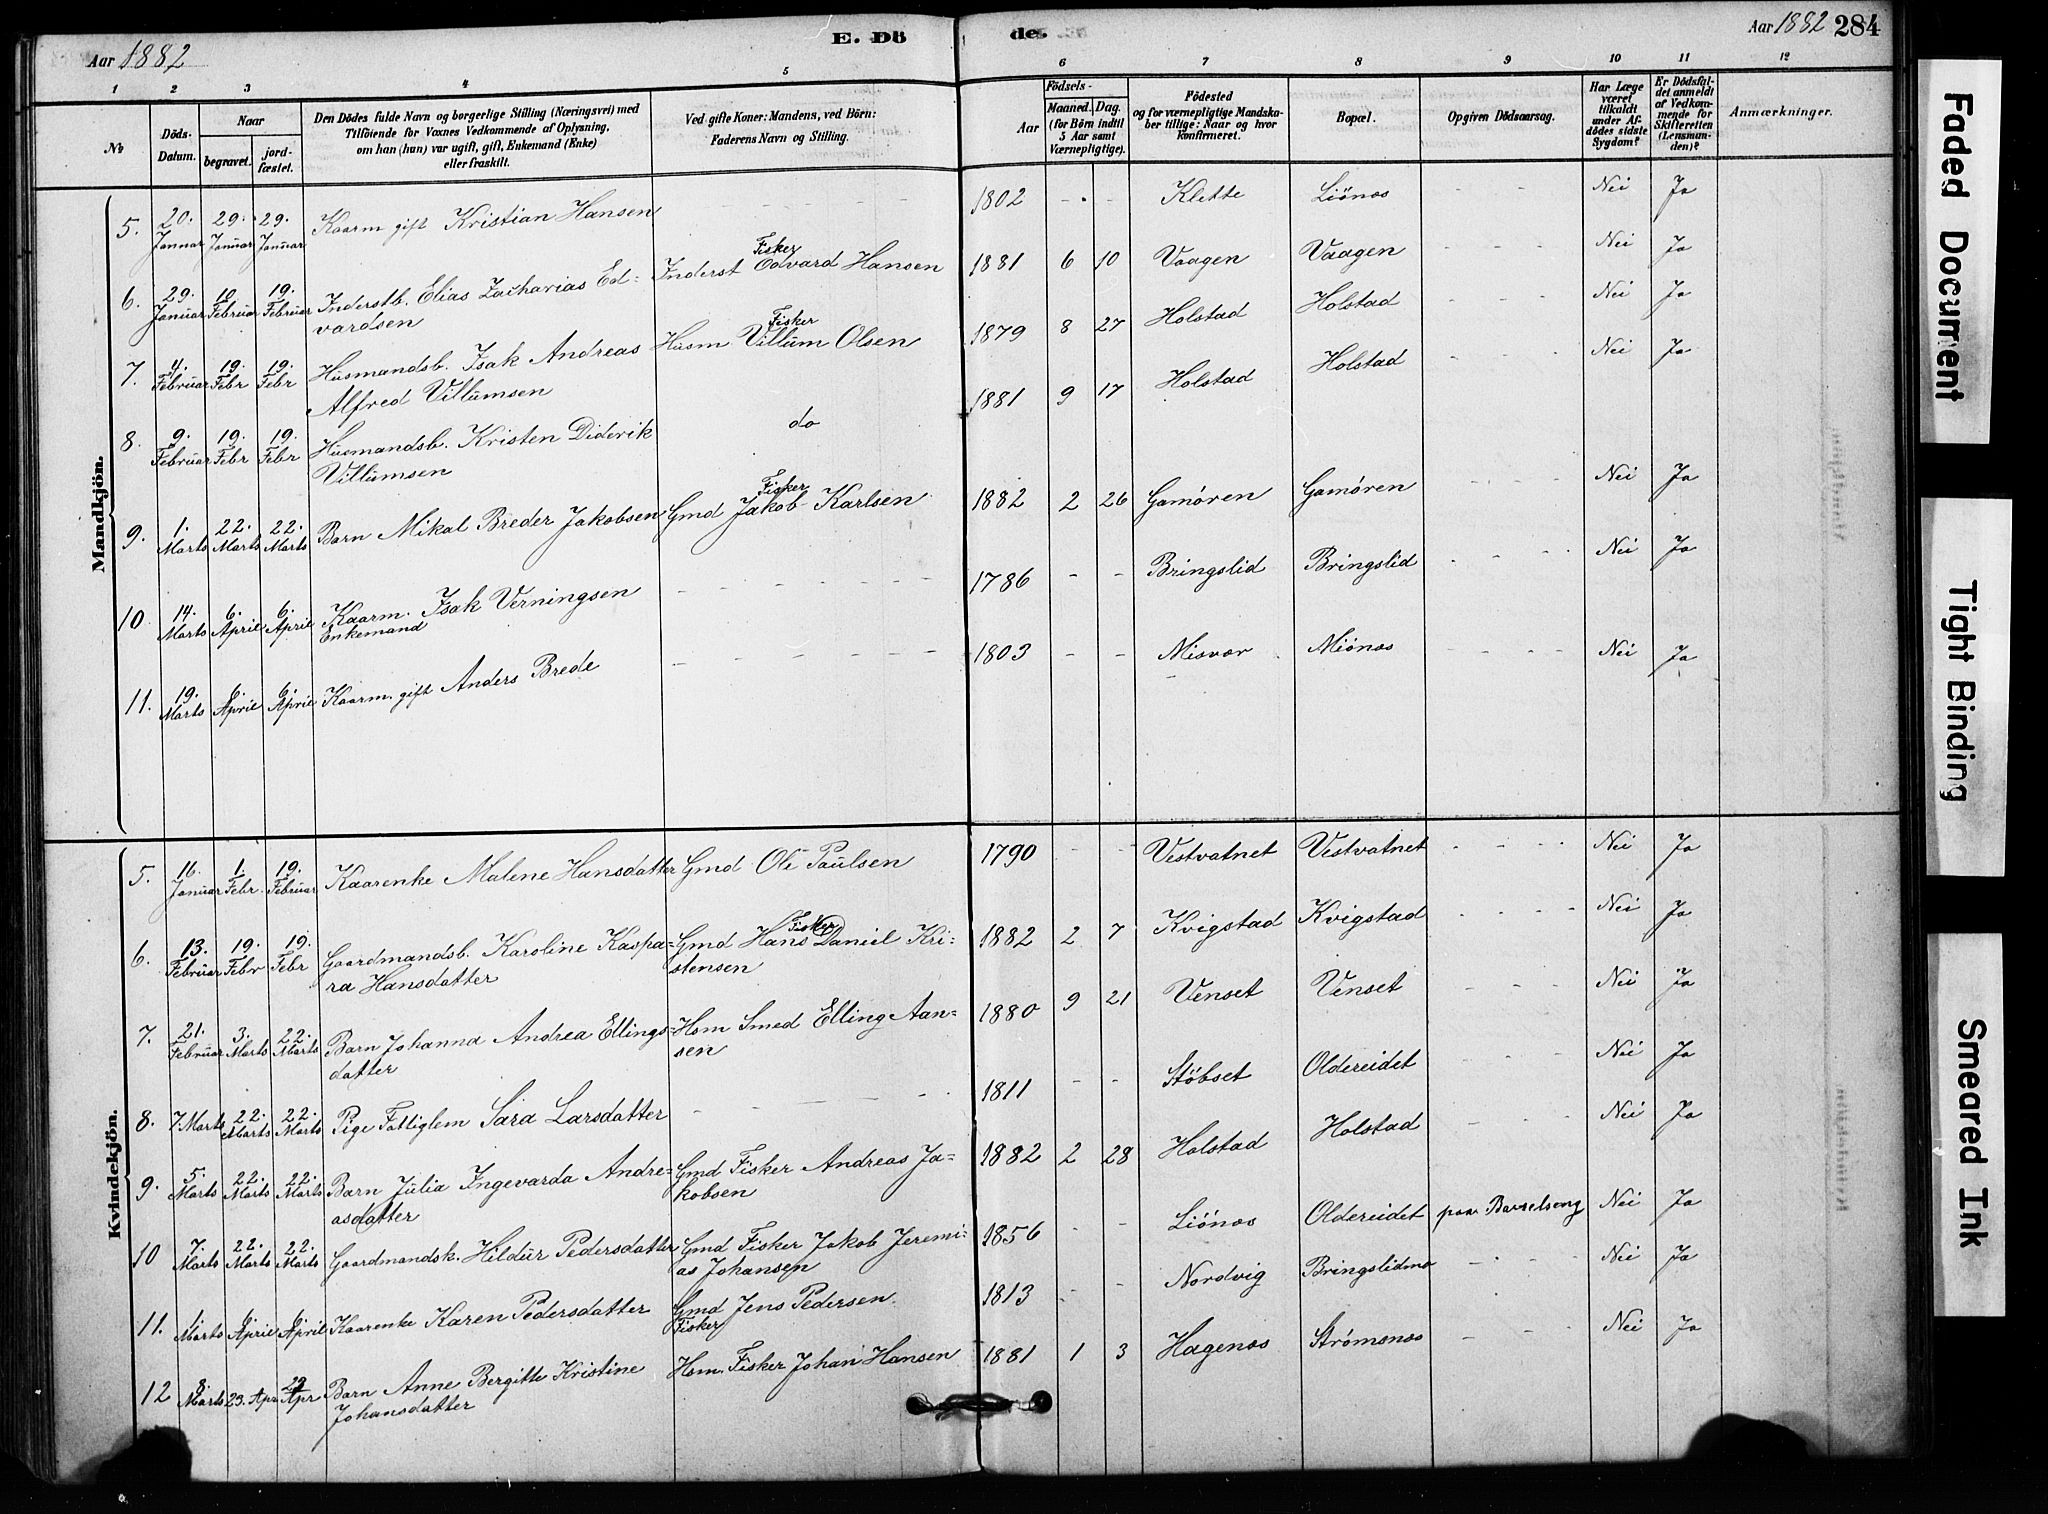 Aar 1882
E. Dö
de.
Aar 1882 284
1 2 3 4 5 6 7 8 9 10 11 12
No
Döds-
Datum.
Naar
begravet.
jord-
fæstet.
Den Dödes fulde Navn og borgerlige Stilling (Næringsvei) med
Tilföiende for Voxnes Vedkommende af Oplysning,
om han (hun) var ugift, gift, Enkemand (Enke)
eller fraskilt.
Ved gifte Koner: Mandens, ved Börn:
Faderens Navn og Stilling.
Födsels-
Aar
Maaned. Dag.
(for Börn indtil
5 Aar samt
Værnepligtige).
Födested
og for værnepligtige Mandska-
ber tillige: Naar og hvor
konfirmeret.
Bopæl.
Opgiven Dödsaarsag.
Har Læge
været
tilkaldt
under Af-
dödes sidste
Sygdom?
Er Dödsfal-
det anmeldt
af Vedkom-
mende for
Skifteretten
(Lensman-
den)?
Anmærkninger.
Mandkjön.
5. 20. Januar 29. Januar 29. Januar Kaarm gift Kristian Hansen - - - 1802 - - Klette Liönæs - - - Nei Ja
6. 29. Januar 10. Februar 19. Februar Inderstb. Elias Zacharias Ed- Inderst Fisker Edvard Hansen 1881 6 10 Vaagen Vaagen - - - Nei Ja
vardsen
7. 4. Februar 19. Febr 19. Febr Husmandsb. Isak Andreas Husm Fisker Villum Olsen 1879 8 27 Holstad Holstad - - - Nei Ja
Alfred Villumsen
8. 9. Februar 19. Febr 19. Febr Husmandsb. Kristen Diderik do 1881 9 17 Holstad Holstad - - - Nei Ja
Villumsen
9. 1. Marts 22. Marts 22. Marts Barn Mikal Breder Jakobsen Gmd Fisker Jakob Karlsen 1882 2 26 Gamøren Gamøren - - - Nei Ja
10. 14. Marts 6. April 6. April Kaarm. Isak Verningsen - - - 1786 - - Bringslid Bringslid - - - Nei Ja
Enkemand
11. 19. Marts 6. April 6. April Kaarm. gift Anders Brede - - - 1803 - - Misvær Miönæs - - - Nei Ja
Kvindekjön.
5. 16. Januar 1. Febr. 19. Februar Kaarenke Malene Hansdatter Gmd Ole Paulsen 1790 - - Vestvatnet Vestvatnet - - - Nei Ja
6. 13. Februar 19. Febr 19. Febr Gaardmandsb. Karoline Kaspa- Gmd Fisker Hans Daniel Kri- 1882 2 7 Kvigstad Kvigstad - - - Nei Ja
ra Hansdatter stensen
7. 21. Februar 3. Marts 22. Marts Barn Johanna Andrea Ellings- Hsm Smed Elling Aan- 1880 9 21 Venset Venset - - - Nei Ja
datter sen
8. 7 Marts 22. Marts 22. Marts Pige Fattiglem Sara Larsdatter - - - 1811 - - Støbset Oldereidet - - - Nei Ja
9. 5. Marts 22. Marts 22. Marts Barn Julia Ingevarda Andre- Gmd Fisker Andreas Ja- 1882 2 28 Holstad Holstad - - - Nei Ja
asdatter kobsen
10 7. Marts 22. Marts 22. Marts Gaardmandsk. Hildur Pedersdatter Gmd Fisker Jakob Jeremi- 1856 - - Liönæs Oldereidet paa Barselseng Nei Ja
as Johansen
11. 1. Marts 6 April 6 April Kaarenke Karen Pedersdatter Gmd Jens Pedersen 1813 - - Nordvig Bringslidmo - - - Nei Ja
Fisker
12 8. Marts 23. Apr 23 Apr Barn Anne Bergitte Kristine Hsm. Fisker Johan Hansen 1881 1 3 Hagenæs Strömsnæs - - - Nei Ja
Johansdatter
Faded Document
Tight Binding
Smeared Ink